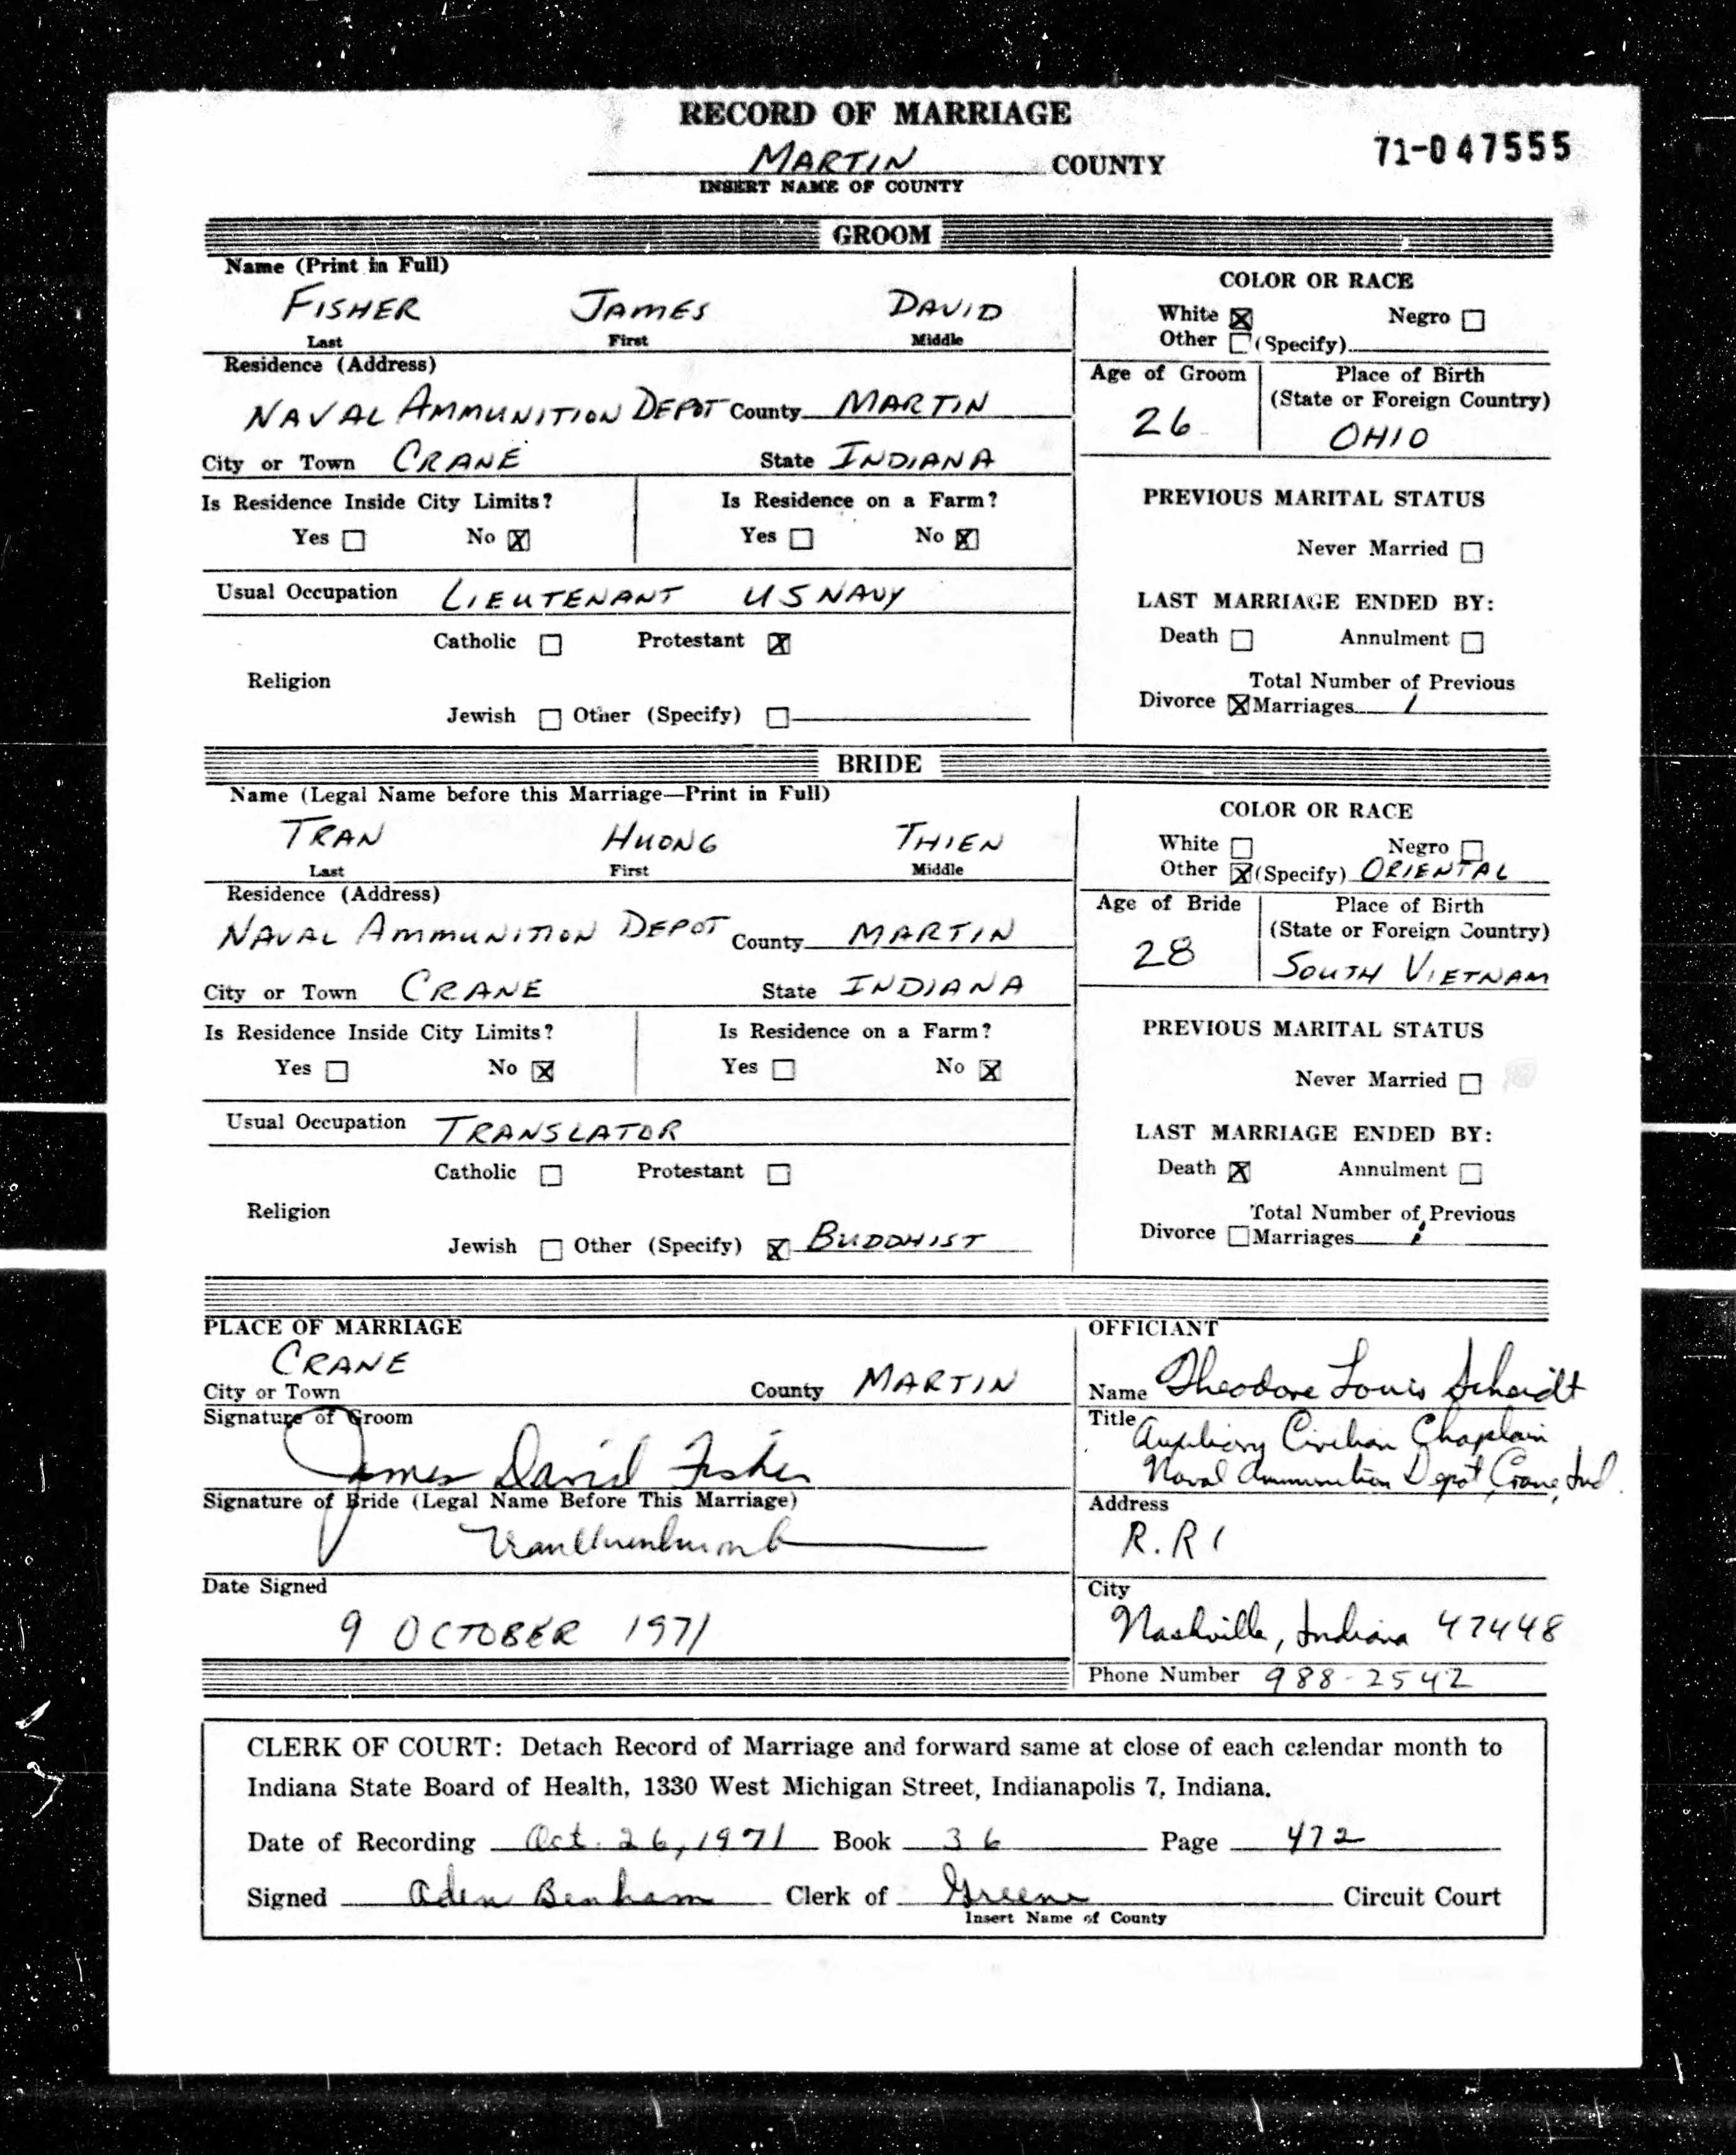 RECORD OF MARRIAGE
MARTIN COUNTY
71-047555
INSERT NAME OF COUNTY
GROOM
Name (Print in Full)
FISHER JAMES DAVID
Last First Middle
COLOR OR RACE
White ☒ Negro ☐
Other ☐ (Specify)
Residence (Address)
NAVAL AMMUNITION DEPOT County MARTIN
City or Town CRANE State INDIANA
Age of Groom
26
Place of Birth
(State or Foreign Country)
OHIO
Is Residence Inside City Limits?
Yes ☐ No ☒
Is Residence on a Farm?
Yes ☐ No ☒
PREVIOUS MARITAL STATUS
Never Married ☐
Usual Occupation LIEUTENANT US NAVY
LAST MARRIAGE ENDED BY:
Death ☐ Annulment ☐
Catholic ☐ Protestant ☒
Religion
Jewish ☐ Other (Specify) ☐
Total Number of Previous
Divorce ☒ Marriages 1
BRIDE
Name (Legal Name before this Marriage—Print in Full)
TRAN HUONG THIEN
Last First Middle
COLOR OR RACE
White ☐ Negro ☐
Other ☒ (Specify) ORIENTAL
Residence (Address)
NAVAL AMMUNITION DEPOT County MARTIN
City or Town CRANE State INDIANA
Age of Bride
28
Place of Birth
(State or Foreign Country)
SOUTH VIETNAM
Is Residence Inside City Limits?
Yes ☐ No ☒
Is Residence on a Farm?
Yes ☐ No ☒
PREVIOUS MARITAL STATUS
Never Married ☐
Usual Occupation TRANSLATOR
LAST MARRIAGE ENDED BY:
Death ☒ Annulment ☐
Catholic ☐ Protestant ☐
Religion
Jewish ☐ Other (Specify) ☒ BUDDHIST
Total Number of Previous
Divorce ☐ Marriages 1
PLACE OF MARRIAGE
CRANE
City or Town County MARTIN
Signature of Groom
James David Fisher
Signature of Bride (Legal Name Before This Marriage)
Date Signed
9 OCTOBER 1971
OFFICIANT
Name Theodore Louis Scheidt
Title Auxiliary Civilian Chaplain
Naval Ammunition Depot, Crane, Ind.
Address
R.R 1
City
Nashville, Indiana 47448
Phone Number 988-2542
CLERK OF COURT: Detach Record of Marriage and forward same at close of each calendar month to
Indiana State Board of Health, 1330 West Michigan Street, Indianapolis 7, Indiana.
Date of Recording Oct. 26, 1971 Book 36 Page 472
Signed Aden Benham Clerk of Greene Circuit Court
Insert Name of County